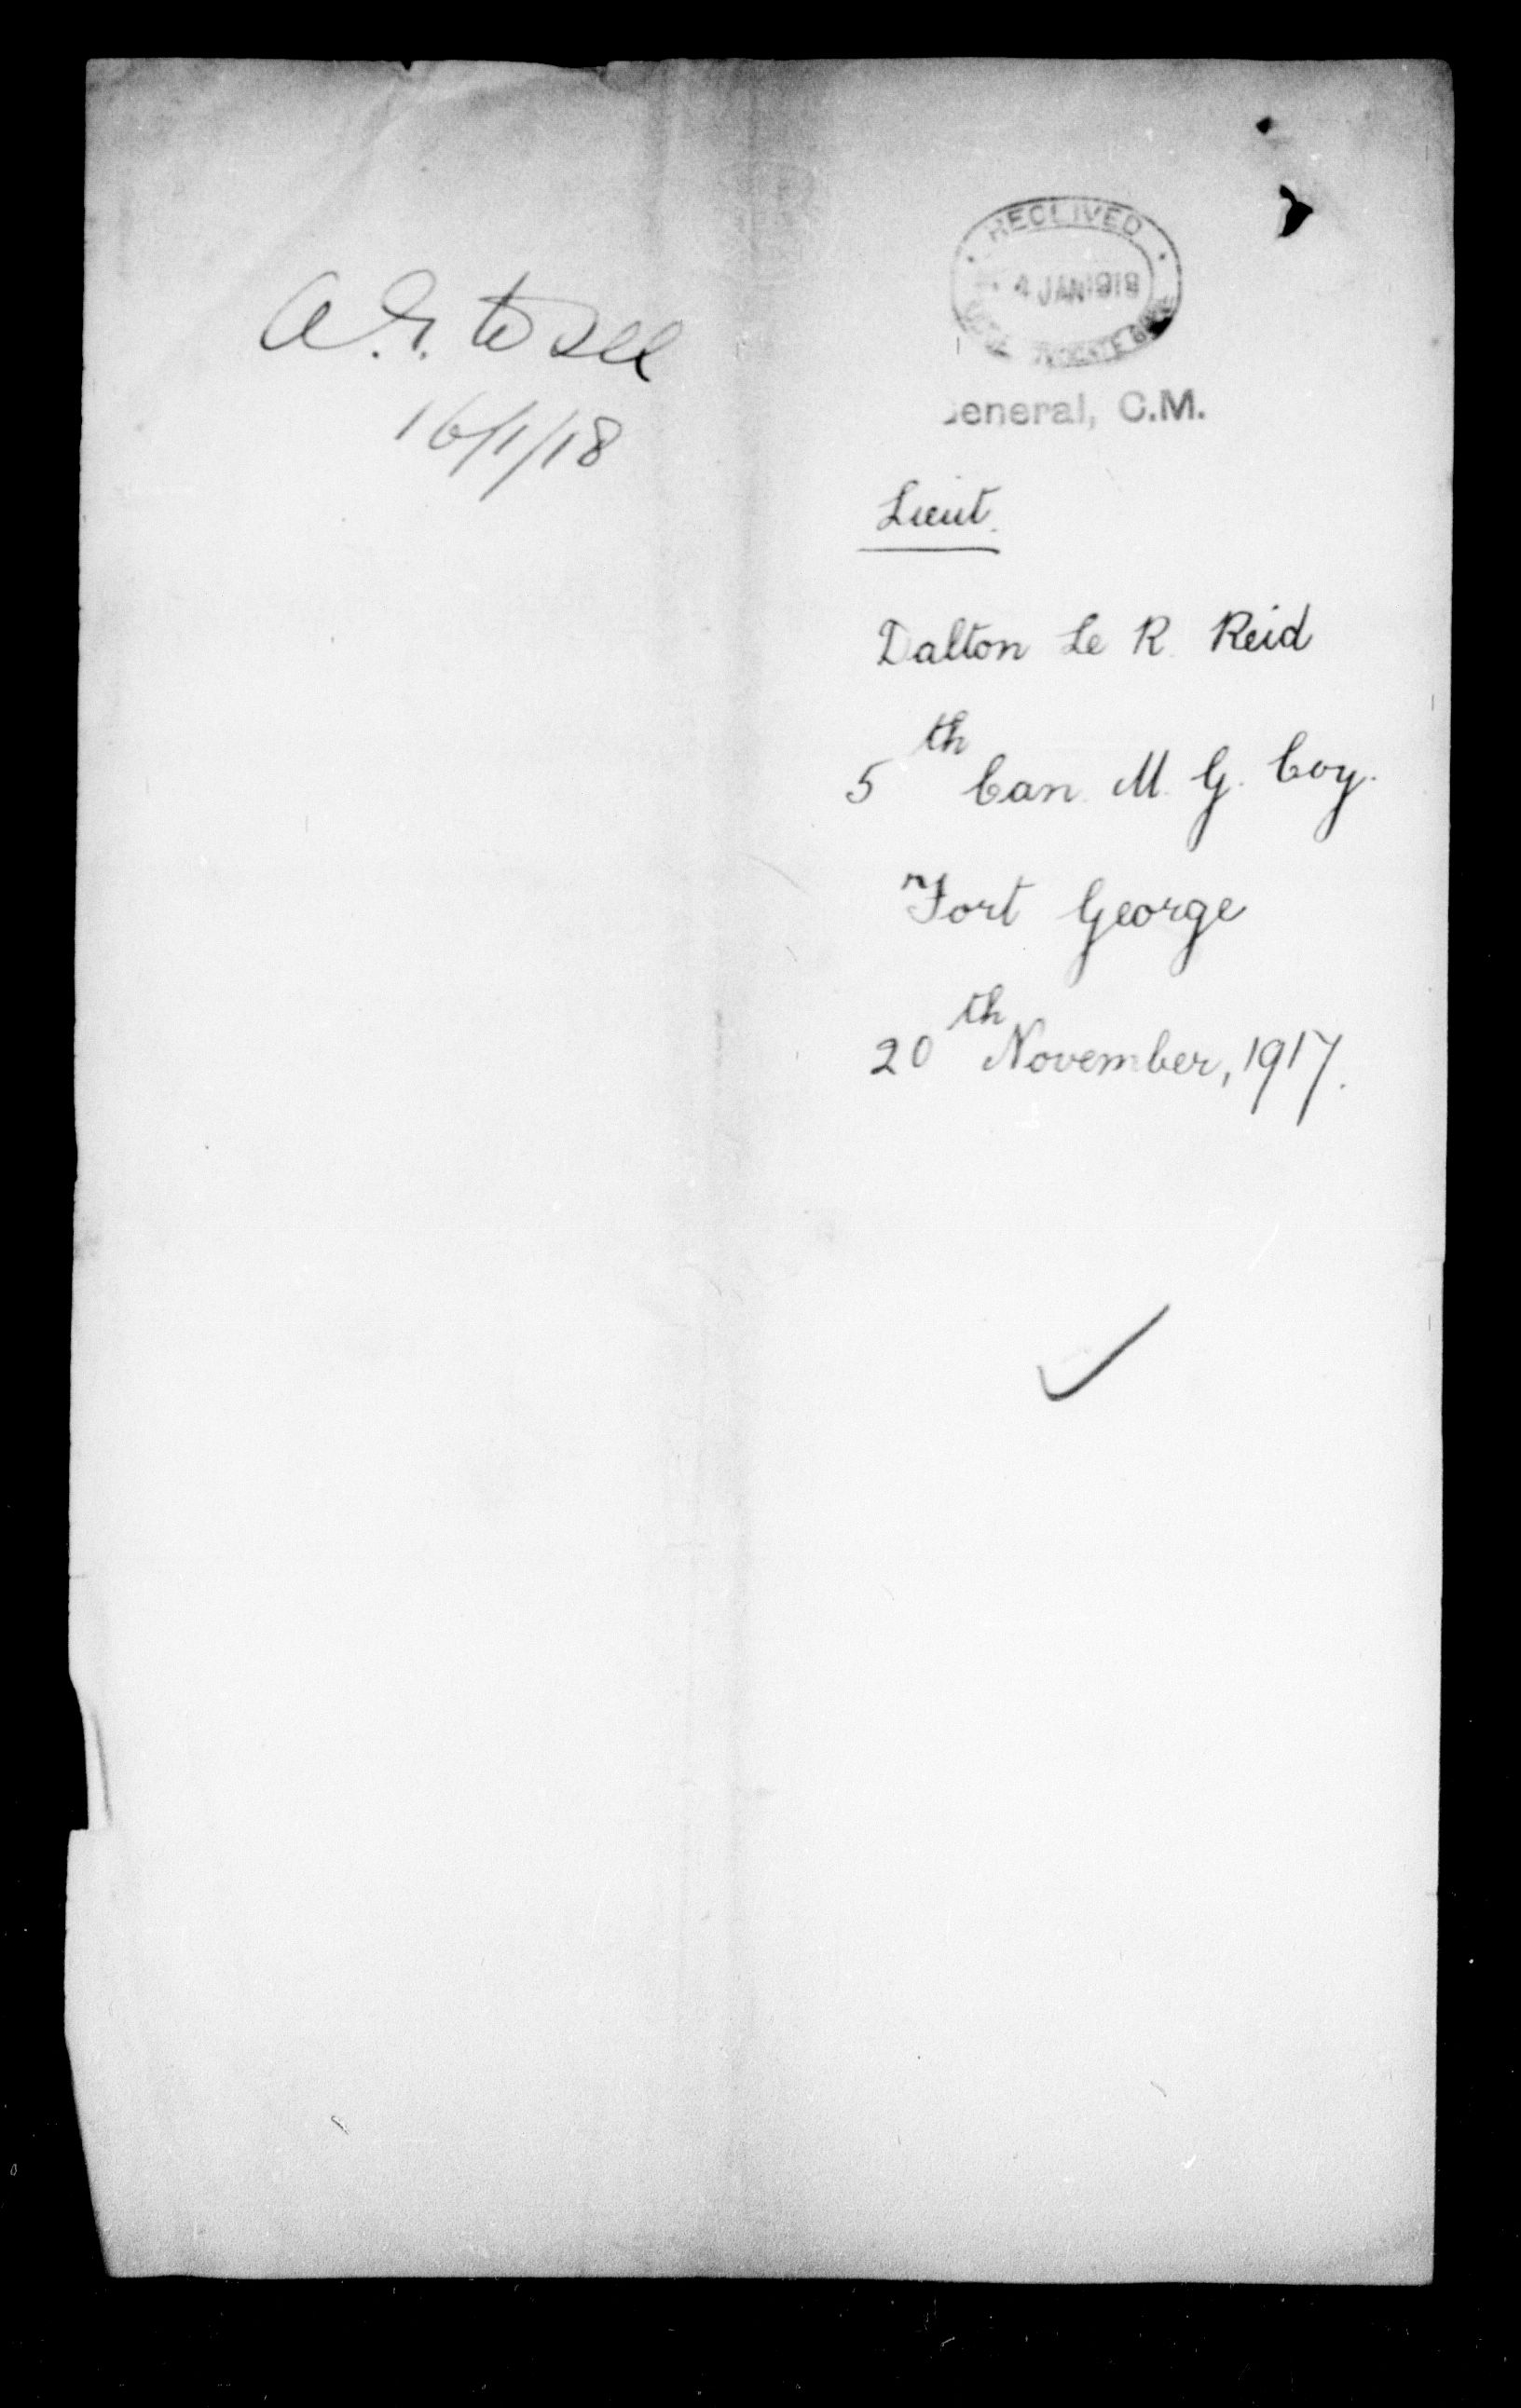 A.G. to see
16/1/18
RECEIVED
4 JAN 1918
JUDGE ADVOCATE
General, C.M.
Lieut.
Dalton Le R. Reid
5th Can. M. G. Coy.
Fort George
20th November, 1917.